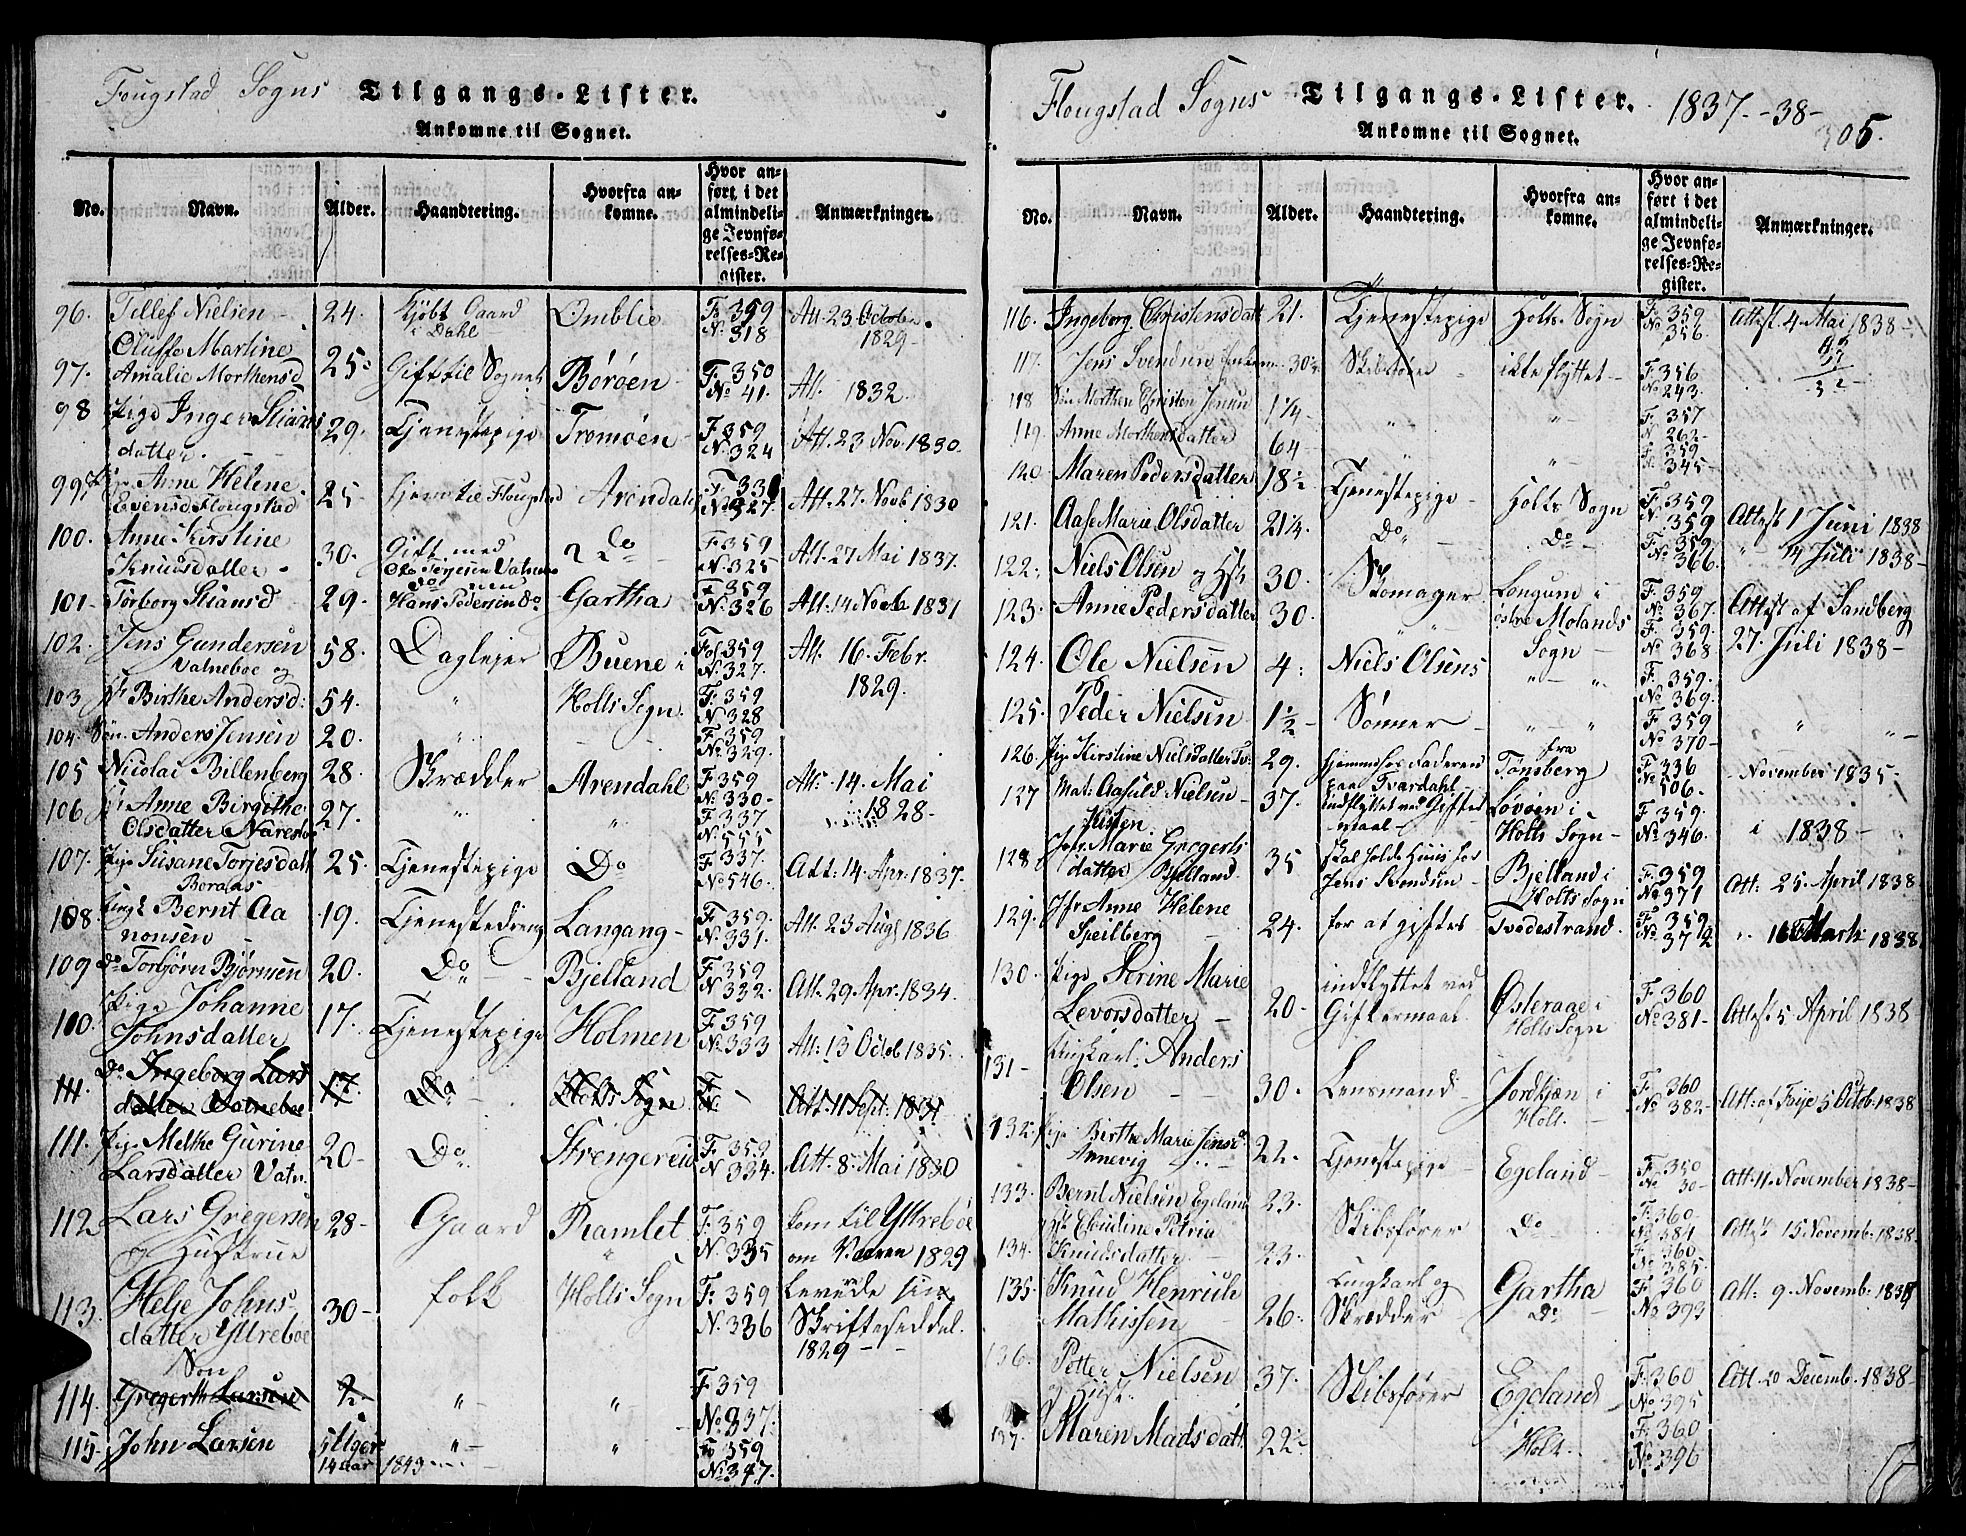 Fougstad Sogns Tilgangs-Lister.
Ankomne til Sognet.
No. Navn. Alder. Haandtering. Hvorfra ankomne. Hvor anført i det almindelige Jevnførelses-Register. Anmærkninger.
96. Tellef Nielsen 24. Kjöbt Gaard i Dahl Omblie F. 359 No. 318 Att. 23 Octob. 1829
97. Oluffe Martine Amalie Morthensd 25 Gift til Sognet Boröen F. 350 No 41. Att. 1832.
98 Pige Inger Stians datter. 29. Tjenestepige Tromöen F. 359 No. 324 Att. 23 Nov. 1830.
99. Anne Helene Evensd Flougstad 25 Arendal No 327. Att. 27. Novb 1830
100. Anne Kirstine Knudsdatter 30. Gift med Do F. 359 No. 325 Att. 27 Mai 1837.
101 Torborg Stiansd 29. Do med Hans Pedersen Do Gartha F. 359 No. 326 Att. 14 Novb 1831
102. Jens Gundersen Vatneboe og 58. Daglejer Buene i Fol. 359 No. 327. Att. 16. Febr. 1829.
103 Birthe Andersd: 54. " Holts Sogn. F. 359 No 328
104. Sön. Anders Jensen 20. " F. 359 No. 329.
105 Nicolai Billenberg 28. Skrædder Arendahl F. 359 No. 330 Att: 14. Mai 1828
106 Anne Birgithe Olsdatter 27. " " F. 337 No. 555
107. Pige Susane Torjesdatt Boraas 25. Tjenestepige Do F. 337. No 546. Att: 14. Apr. 1837.
108 Ungk Bernt Aanonsen 19. Tjenestedreng Langang F. 359. No. 331. Att. 23 Aug 1836
109 Do Torbjørn Bjørnsen 20. Do Bjelland F. 359 No 332. Att. 29 Apr. 1834.
110. Pige Johanne Johnsdatter 17. Tjenestepige Holmen F. 359 No. 333 Att: 13 Octob 1835.
111. Do Ingeborg Larsdatter Vatneboe 17. Do Holts Sogn F. No. Att. 11 Sept. 1831
111. Pige Melthe Gurine Larsdatter Vatn. 20 Do Strengereid F. 359 No 334. Att. 8. Mai 1830
112 Lars Gregersen og Hustrue 28 Gaard Ramlet F. 359 No. 335 kom til Yttreboe om Vaaren 1829
113. Helje Johnsdatter Yttreboe 30 folk Holts Sogn F. 359 No. 336 Leverede sin Skrifteseddel. 1829
114. Søn Gregerth Larsen 2. " " F 359 No. 337.
115 John Larsen 5 Uger 14 aar 1843 " " F. 359 No. 347.
Flougstad Sogns Tilgangs-Lister. 1837.-38- 305.
Ankomne til Sognet.
No. Navn. Alder. Haandtering. Hvorfra ankomne. Hvor anført i det almindelige Jevnførelses-Register. Anmærkninger.
116. Ingeborg Christensdatt 21. Tjenestepige Holts Sogn F. 359 No 356. Attest. 4 Mai 1838
117. Jens Svendsen 30 Skibsfører ikke flyttet F. 356 No 243.
118 Sön Morthen Christen Jensen 1 1/4 " " F. 357 N. 262
119. Anne Morthensdatter 64 " " F. 359 No. 345
120 Maren Pedersdatter 18 1/2 Tjenestepige Holts Sogn F. 359 No. 359 Attest 1 Juni 1838
121. Aase Marie Olsdatter 21 1/4. Do Do F. 359 No. 366. " 14 Juli 1838
122. Niels Olsen og Hst 30. Skomager Longum i F. 359 No. 367. Attest af Sandberg
123. Anne Pedersdatter 30. " østre Molands F. 359. No 368 27. Juli 1838
124. Ole Nielsen 4. Niels Olsens Sogn F. 359. No. 369.
125. Peder Nielsen 1 1/2 Sønner " " F 359 No 370 "
126. Pige Kirstine Nielsdatter 29. hjemme hos Faderen paa Tvardahl fra Tønsberg F. 336 No. 506. November 1835
127 Mat: Aasuld Nielsen 37. indflyttet ved Giftermaal Løvøen i Holts Sogn F. 359. No. 346. i 1838
128 Jfr. Marie Gregertsdatter Bjelland 35 skal holde Huus for Jens Svendsen Bjelland i Holts Sogn F. 359 No 371 Att: 25 April 1838
129. Jfr Anne Helene Speilberg 24. for at giftes Tvedestrand. F. 359 No. 372 " 16 Marts 1838
130. Pige Serine Marie Levorsdatter 20. indflyttet ved Giftermaal Østeraae i Holts Sogn F. 360 No 381 Attest 5 April 1838
131 Ungkarl: Anders Olsen 30. Lensmand Jordkjæn i Holt. F. 360 No 382 Att: af Faye 5 Octob. 1838
132. Pige Birthe Marie Jensd. Annevig 22. Tjenestepige Egeland F. 350 No 30 Att. 11. November 1838
133. Bernt Nielsen Egeland 23. Skibsfører Do F. 360 No 384 Attest 15 Novemb. 1838
134. Elindine Petria Knudsdatter 23. F. 360 No 385.
135. Knud Henrich Mathissen 26. Ungkarl og Skrædder Gartha Do F. 360 No 393 Att: 9. Novemb. 1838
136. Petter Nielsen og Hust. 37. Skibsfører Egeland i F. 360 No. 395 Att. 20 Decemb. 1838
137. Maren Madsdatt. 22 Holt. F. 360 No. 396